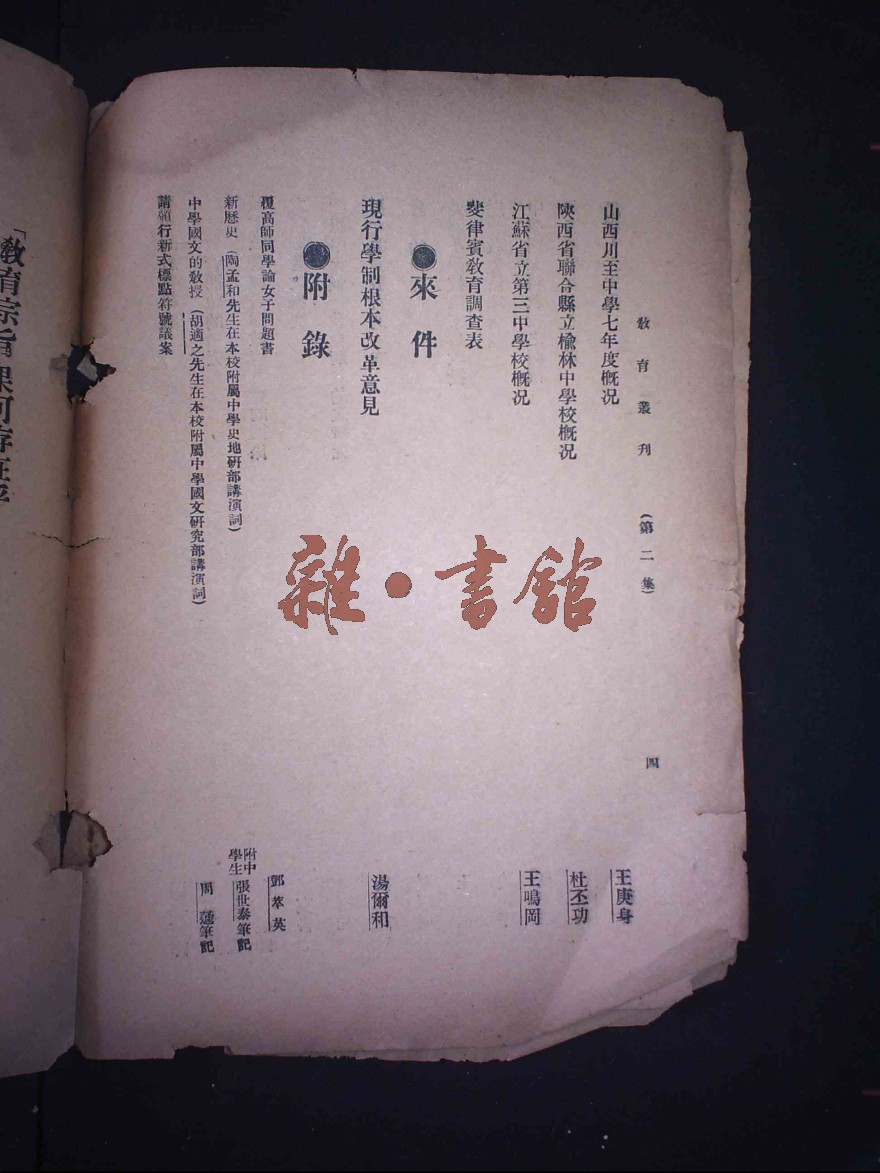 教育叢刊 (第二集) 四
山西川至中學七年度概况 王庚身
陝西省聯合縣立榆林中學校概况 杜丕功
江蘇省立第三中學校概况 王鳴岡
斐律賓教育調查表
●來件
現行學制根本改革意見 湯爾和
●附錄
覆高師同學論女子問題書 鄧萃英
新歷史 (陶孟和先生在本校附屬中學史地研部講演詞) 附中學生 張世泰筆記
中學國文的教授 (胡適之先生在本校附屬中學國文研究部講演詞) 周蘧筆記
請頒行新式標點符號議案
「教育宗旨
雜•書館